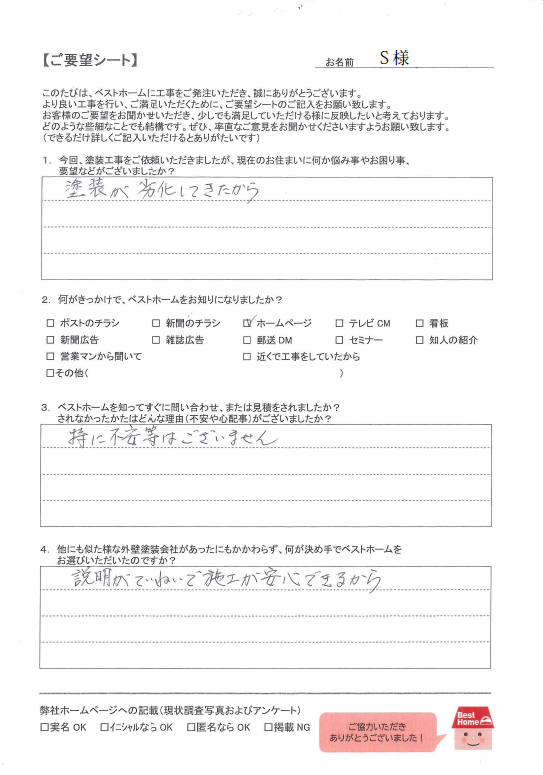 【ご要望シート】
お名前 S様
このたびは、ベストホームに工事をご発注いただき、誠にありがとうございます。
より良い工事を行い、ご満足いただくために、ご要望シートのご記入をお願い致します。
お客様のご要望をお聞かせいただき、少しでも満足していただける様に反映したいと考えております。
どのような些細なことでも結構です。ぜひ、率直なご意見をお聞かせくださいますようお願い致します。
（できるだけ詳しくご記入いただけるとありがたいです）
1. 今回、塗装工事をご依頼いただきましたが、現在のお住まいに何か悩み事やお困り事、
要望などがございましたか？
塗装が劣化してきたから
2. 何がきっかけで、ベストホームをお知りになりましたか？
□ ポストのチラシ □ 新聞のチラシ ☑ ホームページ □ テレビCM □ 看板
□ 新聞広告 □ 雑誌広告 □ 郵送DM □ セミナー □ 知人の紹介
□ 営業マンから聞いて □ 近くで工事をしていたから
□その他（ ）
3. ベストホームを知ってすぐに問い合わせ、または見積をされましたか？
されなかったかたはどんな理由（不安や心配事）がございましたか？
特に不安等はございません
4. 他にも似た様な外壁塗装会社があったにもかかわらず、何が決め手でベストホームを
お選びいただいたのですか？
説明がていねいで施工が安心できるから
弊社ホームページへの記載（現状調査写真およびアンケート）
□実名OK □イニシャルならOK □匿名ならOK □掲載NG
ご協力いただき
ありがとうございました！
Best
Home